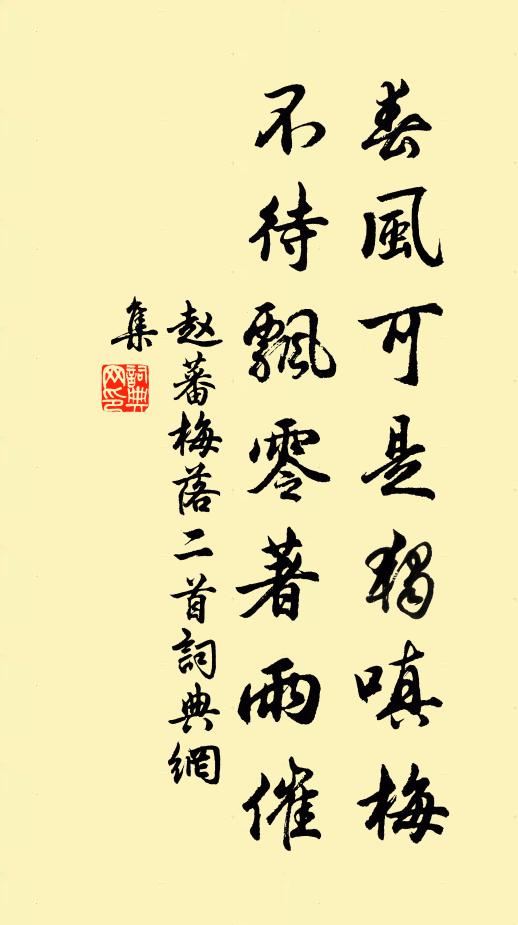 春風可是獨嗔梅
不待飄零著雨催
赵蕃梅落二首詞典網
集
詞典
网印